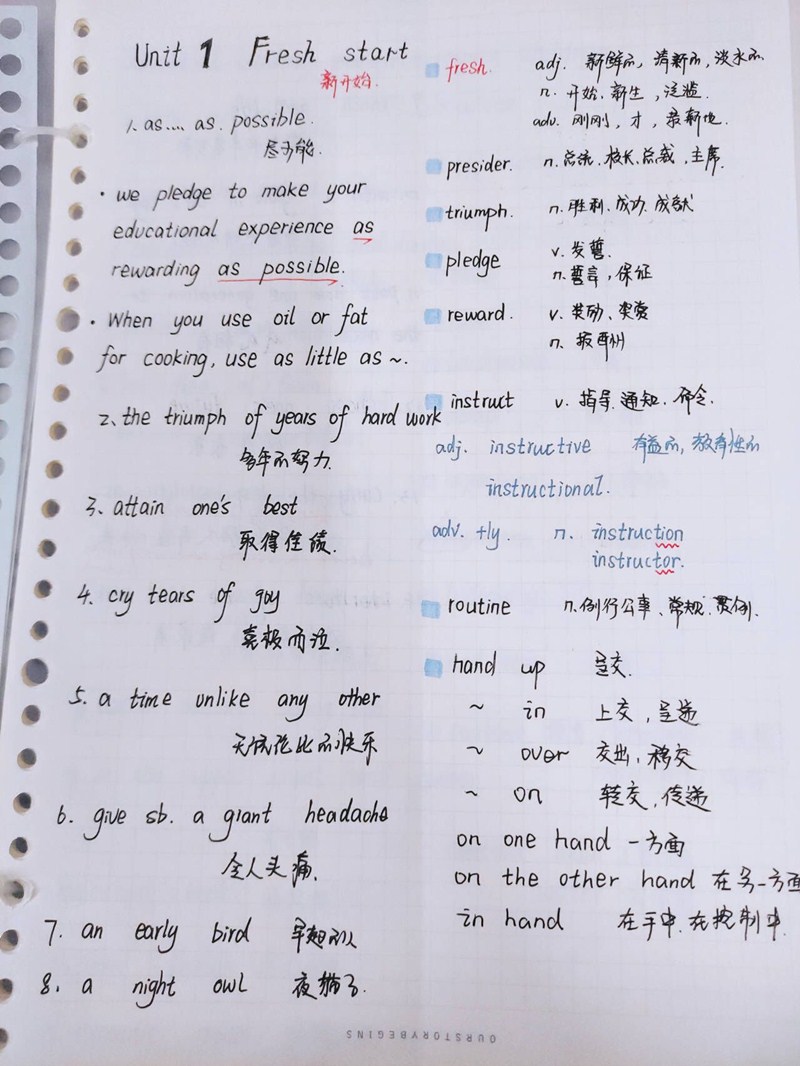 Unit 1 Fresh start
新开始.
1. as.... as possible.
尽可能.
· we pledge to make your
educational experience as
rewarding as possible.
· When you use oil or fat
for cooking, use as little as ~.
2、the triumph of years of hard work
多年的努力.
3、attain one's best
取得佳绩.
4. cry tears of goy
喜极而泣.
5. a time unlike any other
无法伦比的快乐
6. give sb. a giant headache
令人头痛.
7. an early bird 早起的人
8. a night owl 夜猫子.
fresh. adj. 新鲜的, 清新的, 淡水的.
n. 开始. 新生, 泛滥.
adv. 刚刚, 才, 最新地.
presider. n. 总统. 校长. 总裁, 主席.
triumph. n. 胜利. 成功. 成就
pledge v. 发誓.
n. 誓言, 保证
reward. v. 奖励、奖赏
n. 报酬
instruct v. 指导. 通知. 命令.
adj. instructive 有益的, 教育性的
instructional.
adv. +ly. n. instruction
instructor.
routine n. 例行公事、常规. 惯例.
hand up 呈交.
~ in 上交, 呈递
~ over 交出, 移交
~ on 转交, 传递
on one hand 一方面
on the other hand 在另一方面
in hand 在手中. 在控制中.
OURSTORYBEGINS